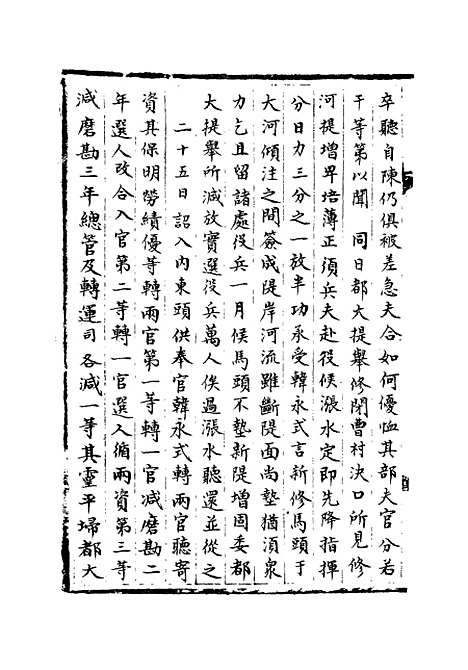 卒聽自陳仍俱被差急夫合如何優恤其部夫官分若
干等第以聞　同日都大提舉修閉曹村決口所見修
河提增卑培薄正須兵夫赴役候漲水定即先降指揮
分日力三分之一放半功承受韓永式言新修馬頭于
大河傾注之間簽成隄岸河流雖斷隄面尚墊猶須衆
力乞且留諸處役兵一月候馬頭不墊新隄增固委都
大提舉所減放實選役兵萬人俟過漲水聽還並從之
二十五日詔入内東頭供奉官韓永式轉兩官聽寄
資其保明勞績優等轉兩官第一等轉一官減磨勘二
年選人改合入官第二等轉一官選人循兩資第三等
減磨勘三年總管及轉運司各減一等其靈平埽都大